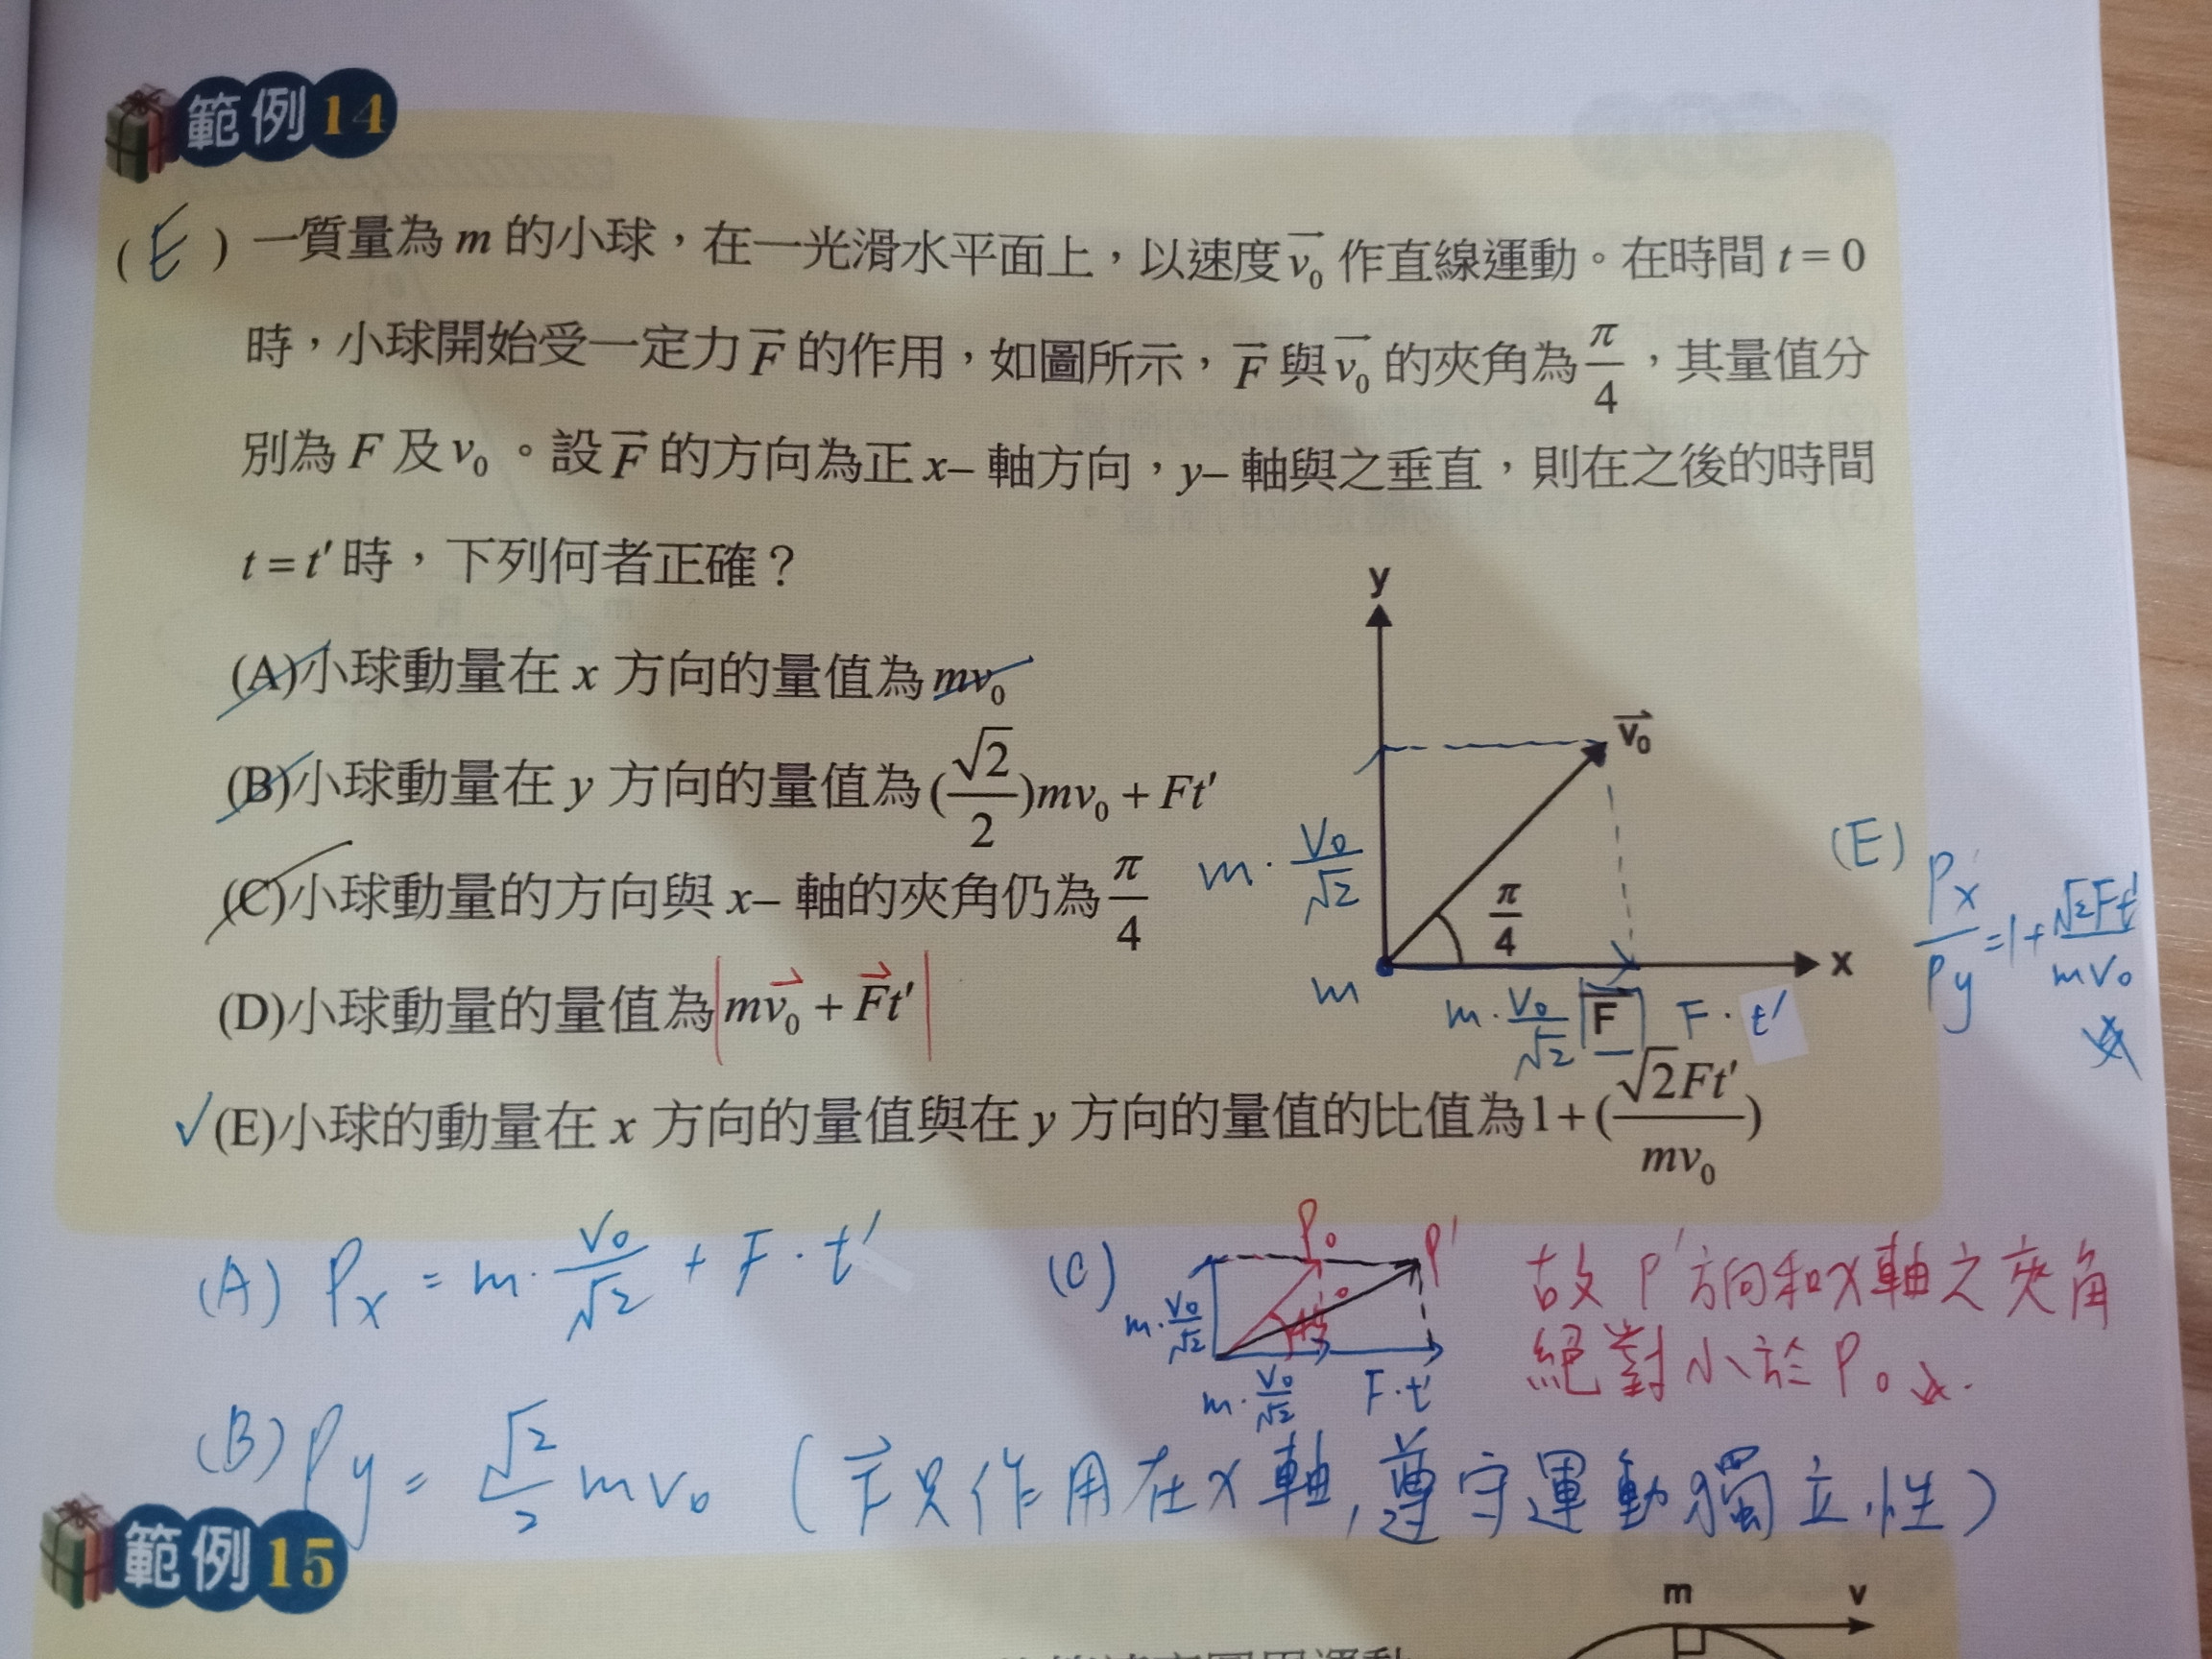 範例14
(E) 一質量為 m 的小球，在一光滑水平面上，以速度 $\vec{v_0}$ 作直線運動。在時間 t = 0
時，小球開始受一定力 $\vec{F}$ 的作用，如圖所示，$\vec{F}$ 與 $\vec{v_0}$ 的夾角為 $\frac{\pi}{4}$，其量值分
別為 F 及 $v_0$。設 $\vec{F}$ 的方向為正 x– 軸方向，y– 軸與之垂直，則在之後的時間
t = t′ 時，下列何者正確？
(A)小球動量在 x 方向的量值為 $mv_0$
(B)小球動量在 y 方向的量值為 $(\frac{\sqrt{2}}{2})mv_0 + Ft'$
(C)小球動量的方向與 x– 軸的夾角仍為 $\frac{\pi}{4}$
(D)小球動量的量值為 $|m\vec{v_0} + \vec{F}t'|$
✓(E)小球的動量在 x 方向的量值與在 y 方向的量值的比值為 $1 + (\frac{\sqrt{2}Ft'}{mv_0})$
y
$\vec{v_0}$
$m \cdot \frac{v_0}{\sqrt{2}}$
$\frac{\pi}{4}$
x
m
$m \cdot \frac{v_0}{\sqrt{2}}$ $\vec{F}$ $F \cdot t'$
(E) $\frac{P_x}{P_y} = 1 + \frac{\sqrt{2}Ft'}{mv_0}$
(A) $P_x = m \cdot \frac{v_0}{\sqrt{2}} + F \cdot t'$
(C) $P_0$ P′
$m \cdot \frac{v_0}{\sqrt{2}}$ 45°
$m \cdot \frac{v_0}{\sqrt{2}}$ $F \cdot t'$
故 P′ 方向和 x 軸之夾角
絕對小於 $P_0$
(B) $P_y = \frac{\sqrt{2}}{2} mv_0$ ($\vec{F}$ 只作用在 x 軸, 遵守運動獨立性)
範例15
m
v